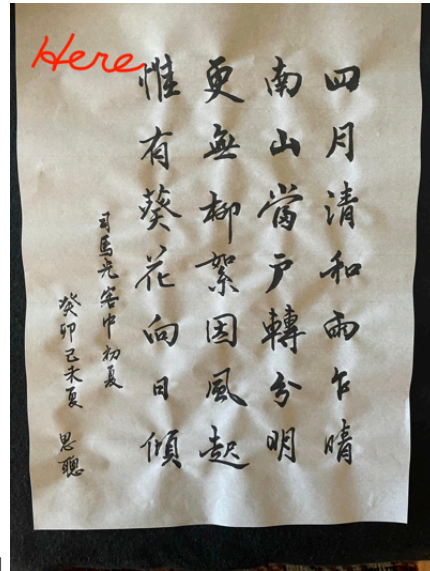 Here
四月清和雨乍晴
南山當戶轉分明
更無柳絮因風起
惟有葵花向日傾
司馬光客中初夏
癸卯己未夏 思聰